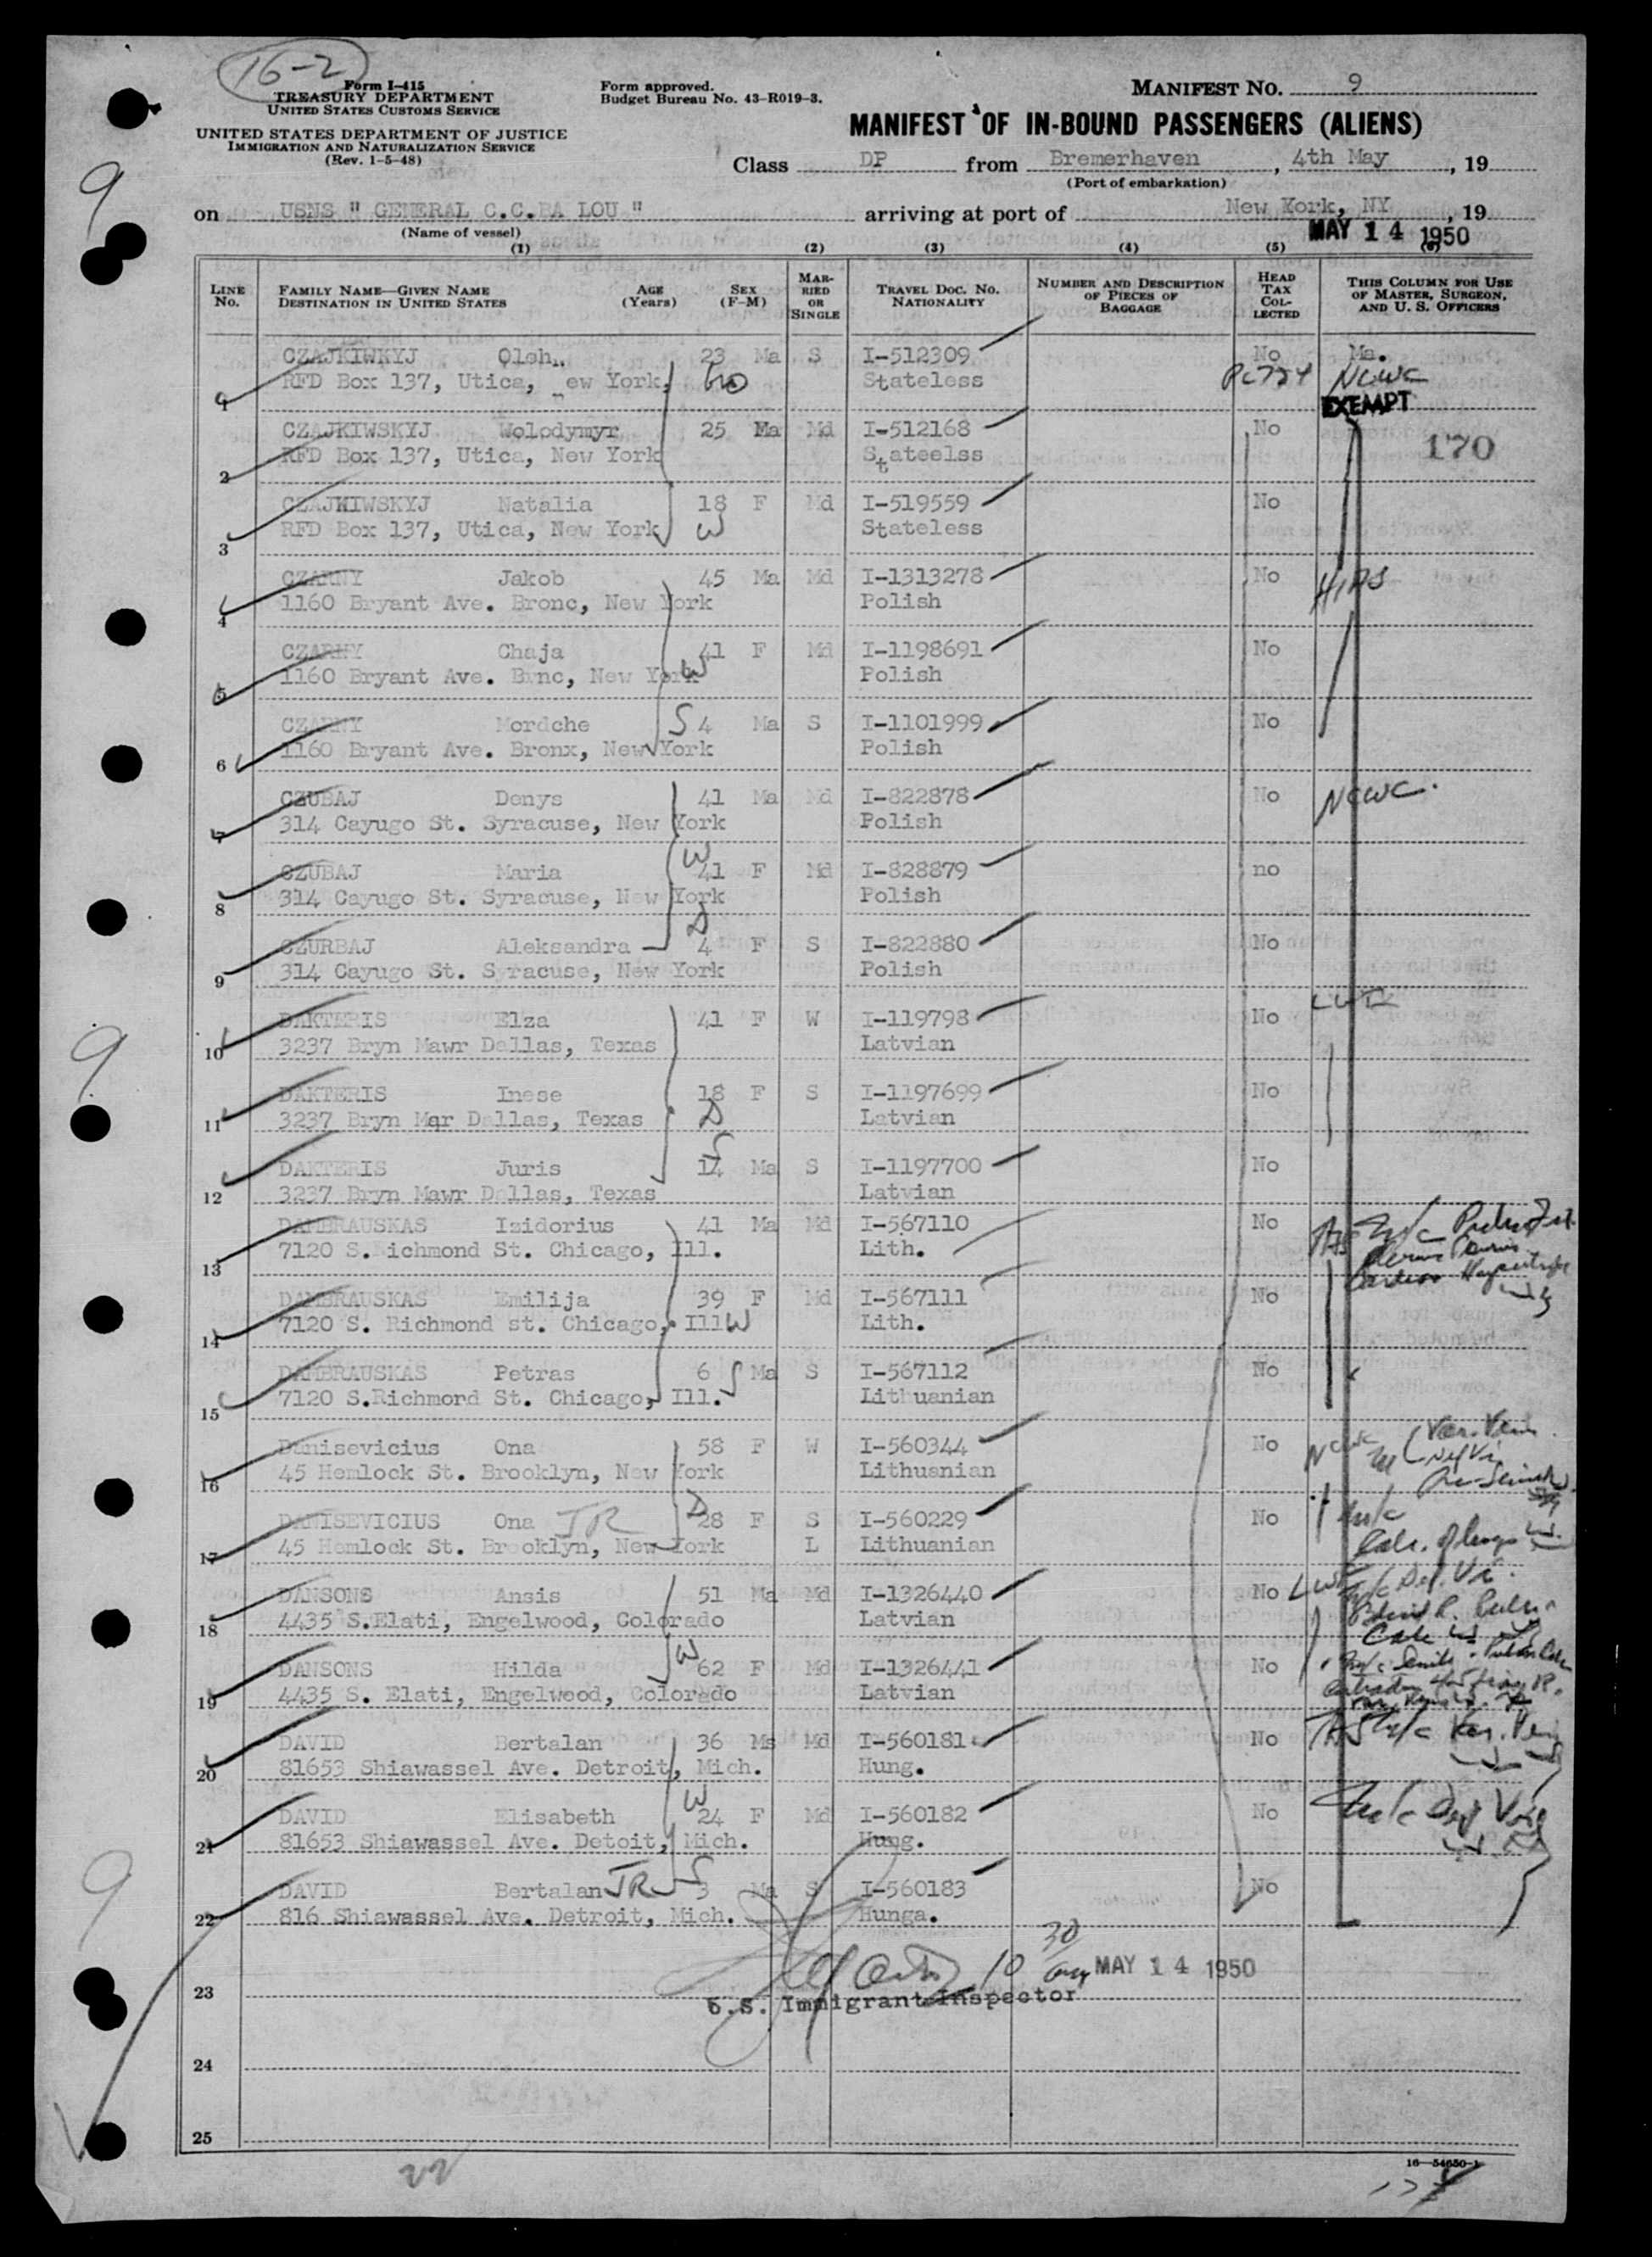 16-2
Form I-415
TREASURY DEPARTMENT
UNITED STATES CUSTOMS SERVICE
UNITED STATES DEPARTMENT OF JUSTICE
IMMIGRATION AND NATURALIZATION SERVICE
(Rev. 1-5-48)
Form approved.
Budget Bureau No. 43-R019-3.
MANIFEST NO. 9
MANIFEST OF IN-BOUND PASSENGERS (ALIENS)
Class DP from Bremerhaven, 4th May, 19
(Port of embarkation)
on USNS " GENERAL C.C.BA LOU " arriving at port of New York, NY, 19
(Name of vessel)
MAY 14 1950
(1) (2) (3) (4) (5) (6)
LINE No. FAMILY NAME—GIVEN NAME DESTINATION IN UNITED STATES AGE (Years) SEX (F-M) MARRIED OR SINGLE TRAVEL DOC. NO. NATIONALITY NUMBER AND DESCRIPTION OF PIECES OF BAGGAGE HEAD TAX COLLECTED THIS COLUMN FOR USE OF MASTER, SURGEON, AND U. S. OFFICERS
CZAJKIWKYJ Oleh 23 Ma S I-512309 No Ma.
1 RFD Box 137, Utica, ew York, Stateless NCWC
EXEMPT
CZAJKIWSKYJ Wolodymyr 25 Ma Md I-512168 No 170
2 RFD Box 137, Utica, New York Stateelss
CZAJKIWSKYJ Natalia 18 F Md I-519559 No
3 RFD Box 137, Utica, New York W Stateless
CZARNY Jakob 45 Ma Md I-1313278 No HIAS
4 1160 Bryant Ave. Bronc, New York Polish
CZARNY Chaja 41 F Md I-1198691 No
5 1160 Bryant Ave. Brnc, New York W Polish
CZARNY Mordche S 4 Ma S I-1101999 No
6 1160 Bryant Ave. Bronx, New York Polish
CZUBAJ Denys 41 Ma Md I-822878 No NCWC.
7 314 Cayugo St. Syracuse, New York Polish
W
CZUBAJ Maria 41 F Md I-828879 no
8 314 Cayugo St. Syracuse, New York Polish
D
CZURBAJ Aleksandra 4 F S I-822880 No
9 314 Cayugo St. Syracuse, New York Polish
DAKTERIS Elza 41 F W I-119798 No
10 3237 Bryn Mawr Dallas, Texas Latvian
DAKTERIS Inese 18 F S I-1197699 No
11 3237 Bryn Mar Dallas, Texas D Latvian
S
DAKTERIS Juris 14 Ma S I-1197700 No
12 3237 Bryn Mawr Dallas, Texas Latvian
DAMBRAUSKAS Izidorius 41 Ma Md I-567110 No
13 7120 S.Richmond St. Chicago, Ill. Lith.
DAMBRAUSKAS Emilija 39 F Md I-567111 No
14 7120 S. Richmond st. Chicago, Ill W Lith.
DAMBRAUSKAS Petras 6 S Ma S I-567112 No
15 7120 S.Richmord St. Chicago, Ill. Lithuanian
Danisevicius Ona 58 F W I-560344 No NCWC
16 45 Hemlock St. Brooklyn, New York Lithuanian
DANISEVICIUS Ona JR D 28 F S I-560229 No
17 45 Hemlock St. Brooklyn, New York L Lithuanian
DANSONS Ansis 51 Ma Md I-1326440 No
18 4435 S.Elati, Engelwood, Colorado Latvian
W
DANSONS Hilda 62 F Md I-1326441 No
19 4435 S. Elati, Engelwood, Colorado Latvian
DAVID Bertalan 36 Ma Md I-560181 No
20 81653 Shiawassel Ave. Detroit, Mich. Hung.
W
DAVID Elisabeth 24 F Md I-560182 No
21 81653 Shiawassel Ave. Detoit, Mich. Hung.
DAVID Bertalan JR S 3 Ma S I-560183 No
22 816 Shiawassel Ave. Detroit, Mich. Hunga.
10 30 MAY 14 1950
23 U.S. Immigrant Inspector
24
25
16—54650-1
22
9
9
9